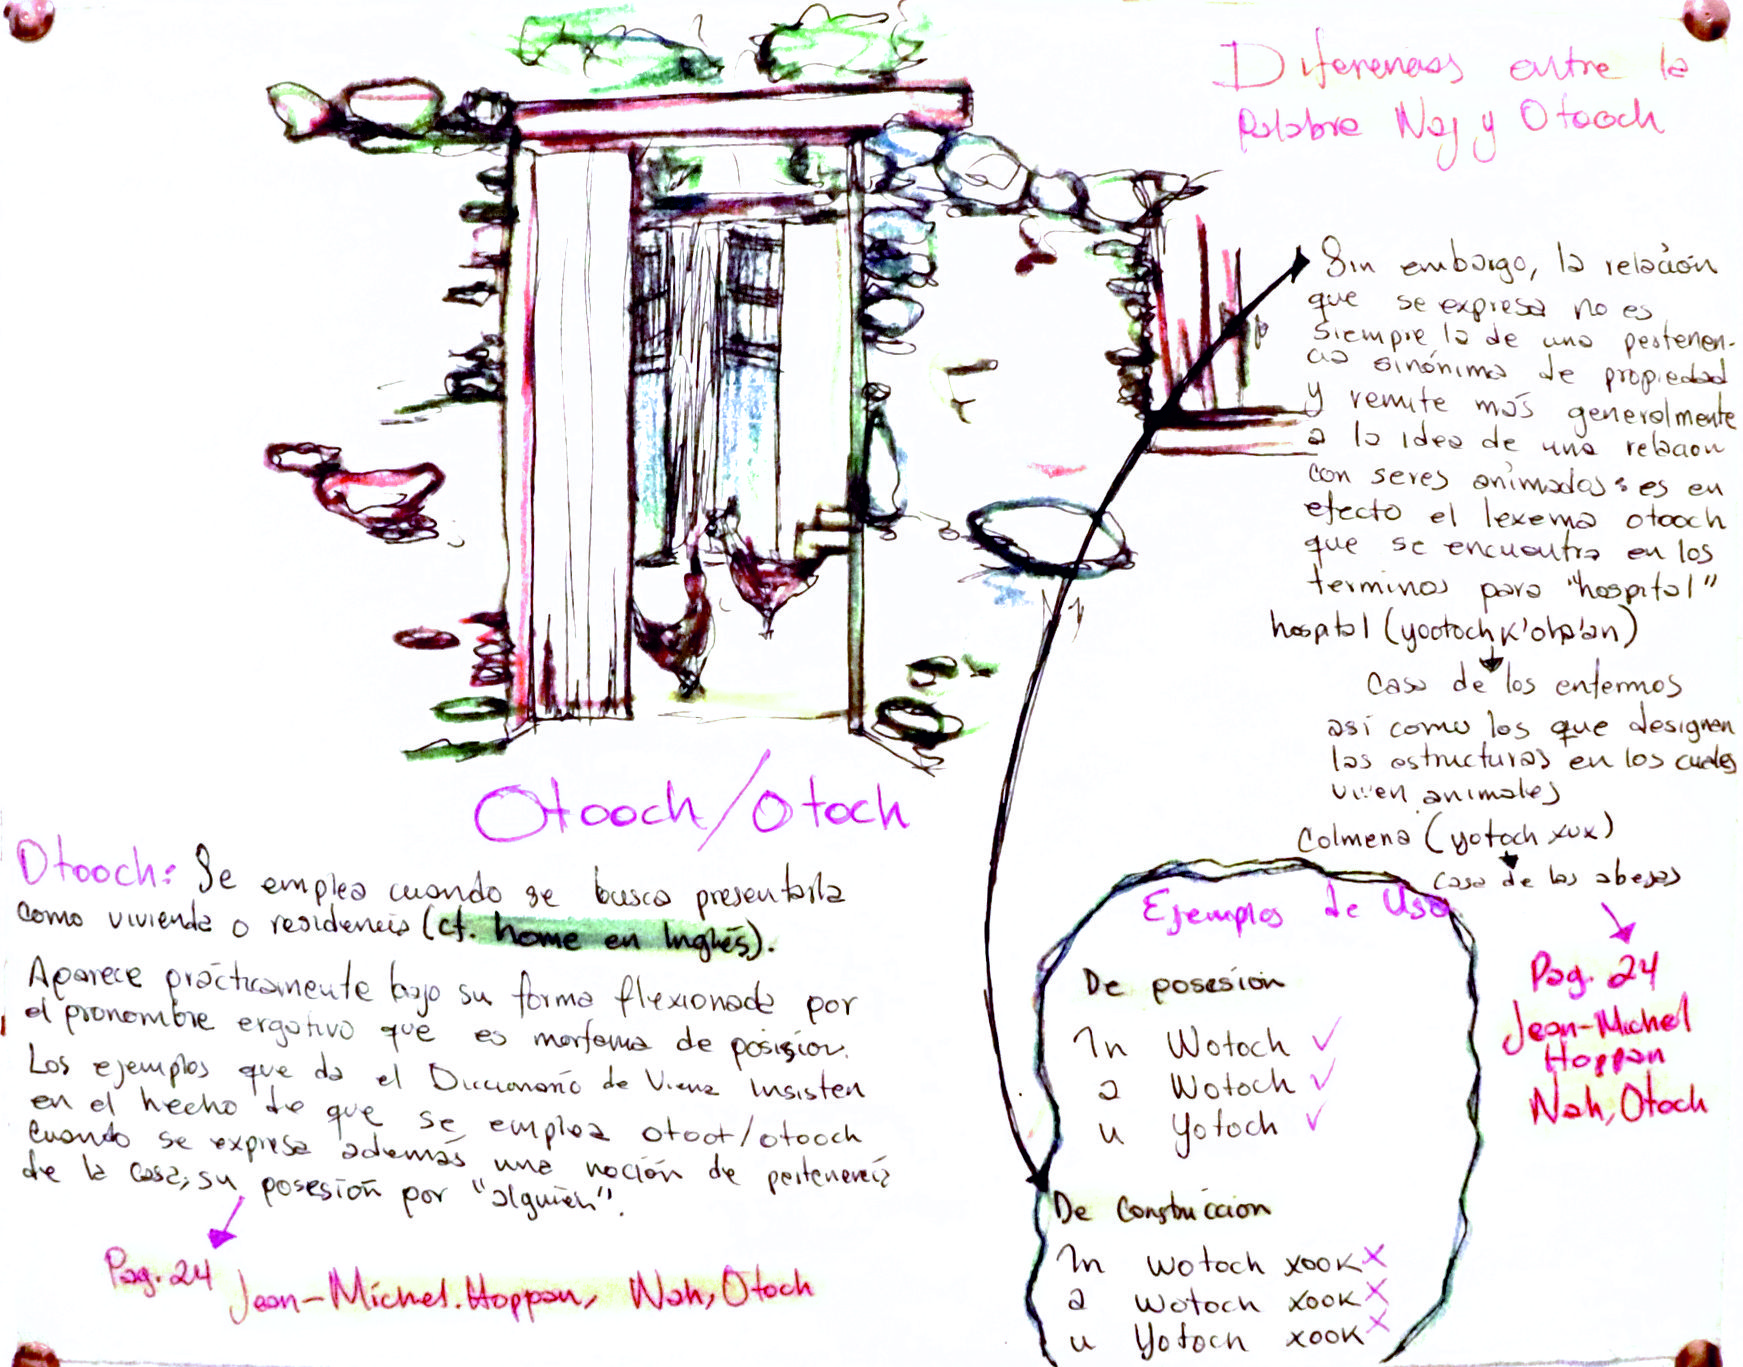 Diferencias entre la
Palabra Naj y Otooch
Sin embargo, la relación
que se expresa no es
siempre la de una pertenen-
cia sinónima de propiedad
y remite más generalmente
a la idea de una relacion
con seres animados: es en
efecto el lexema otooch
que se encuentra en los
terminos para "hospital"
hospital (yootoch k'oha'an)
Casa de los enfermos
así como los que designan
las estructuras en los cuales
viven animales
Colmena (yotoch xux)
casa de las abejas
Pag. 24
Jean-Michel
Hoppan
Nah, Otoch
Otooch/Otoch
Otooch: Se emplea cuando se busca presentarla
como vivienda o residencia (cf. home en Inglés).
Aparece prácticamente bajo su forma flexionada por
el pronombre ergativo que es morfema de posision.
Los ejemplos que da el Diccionario de Viena insisten
en el hecho de que se emplea otoot/otooch
cuando se expresa además una noción de pertenencia
de la casa; su posesión por "alguien".
Pag. 24 Jean-Michel. Hoppan, Nah, Otoch
Ejemplos de Uso
De posesión
In Wotoch ✓
a Wotoch ✓
u Yotoch ✓
De Construccion
In Wotoch xook x
a Wotoch xook x
u Yotoch xook x